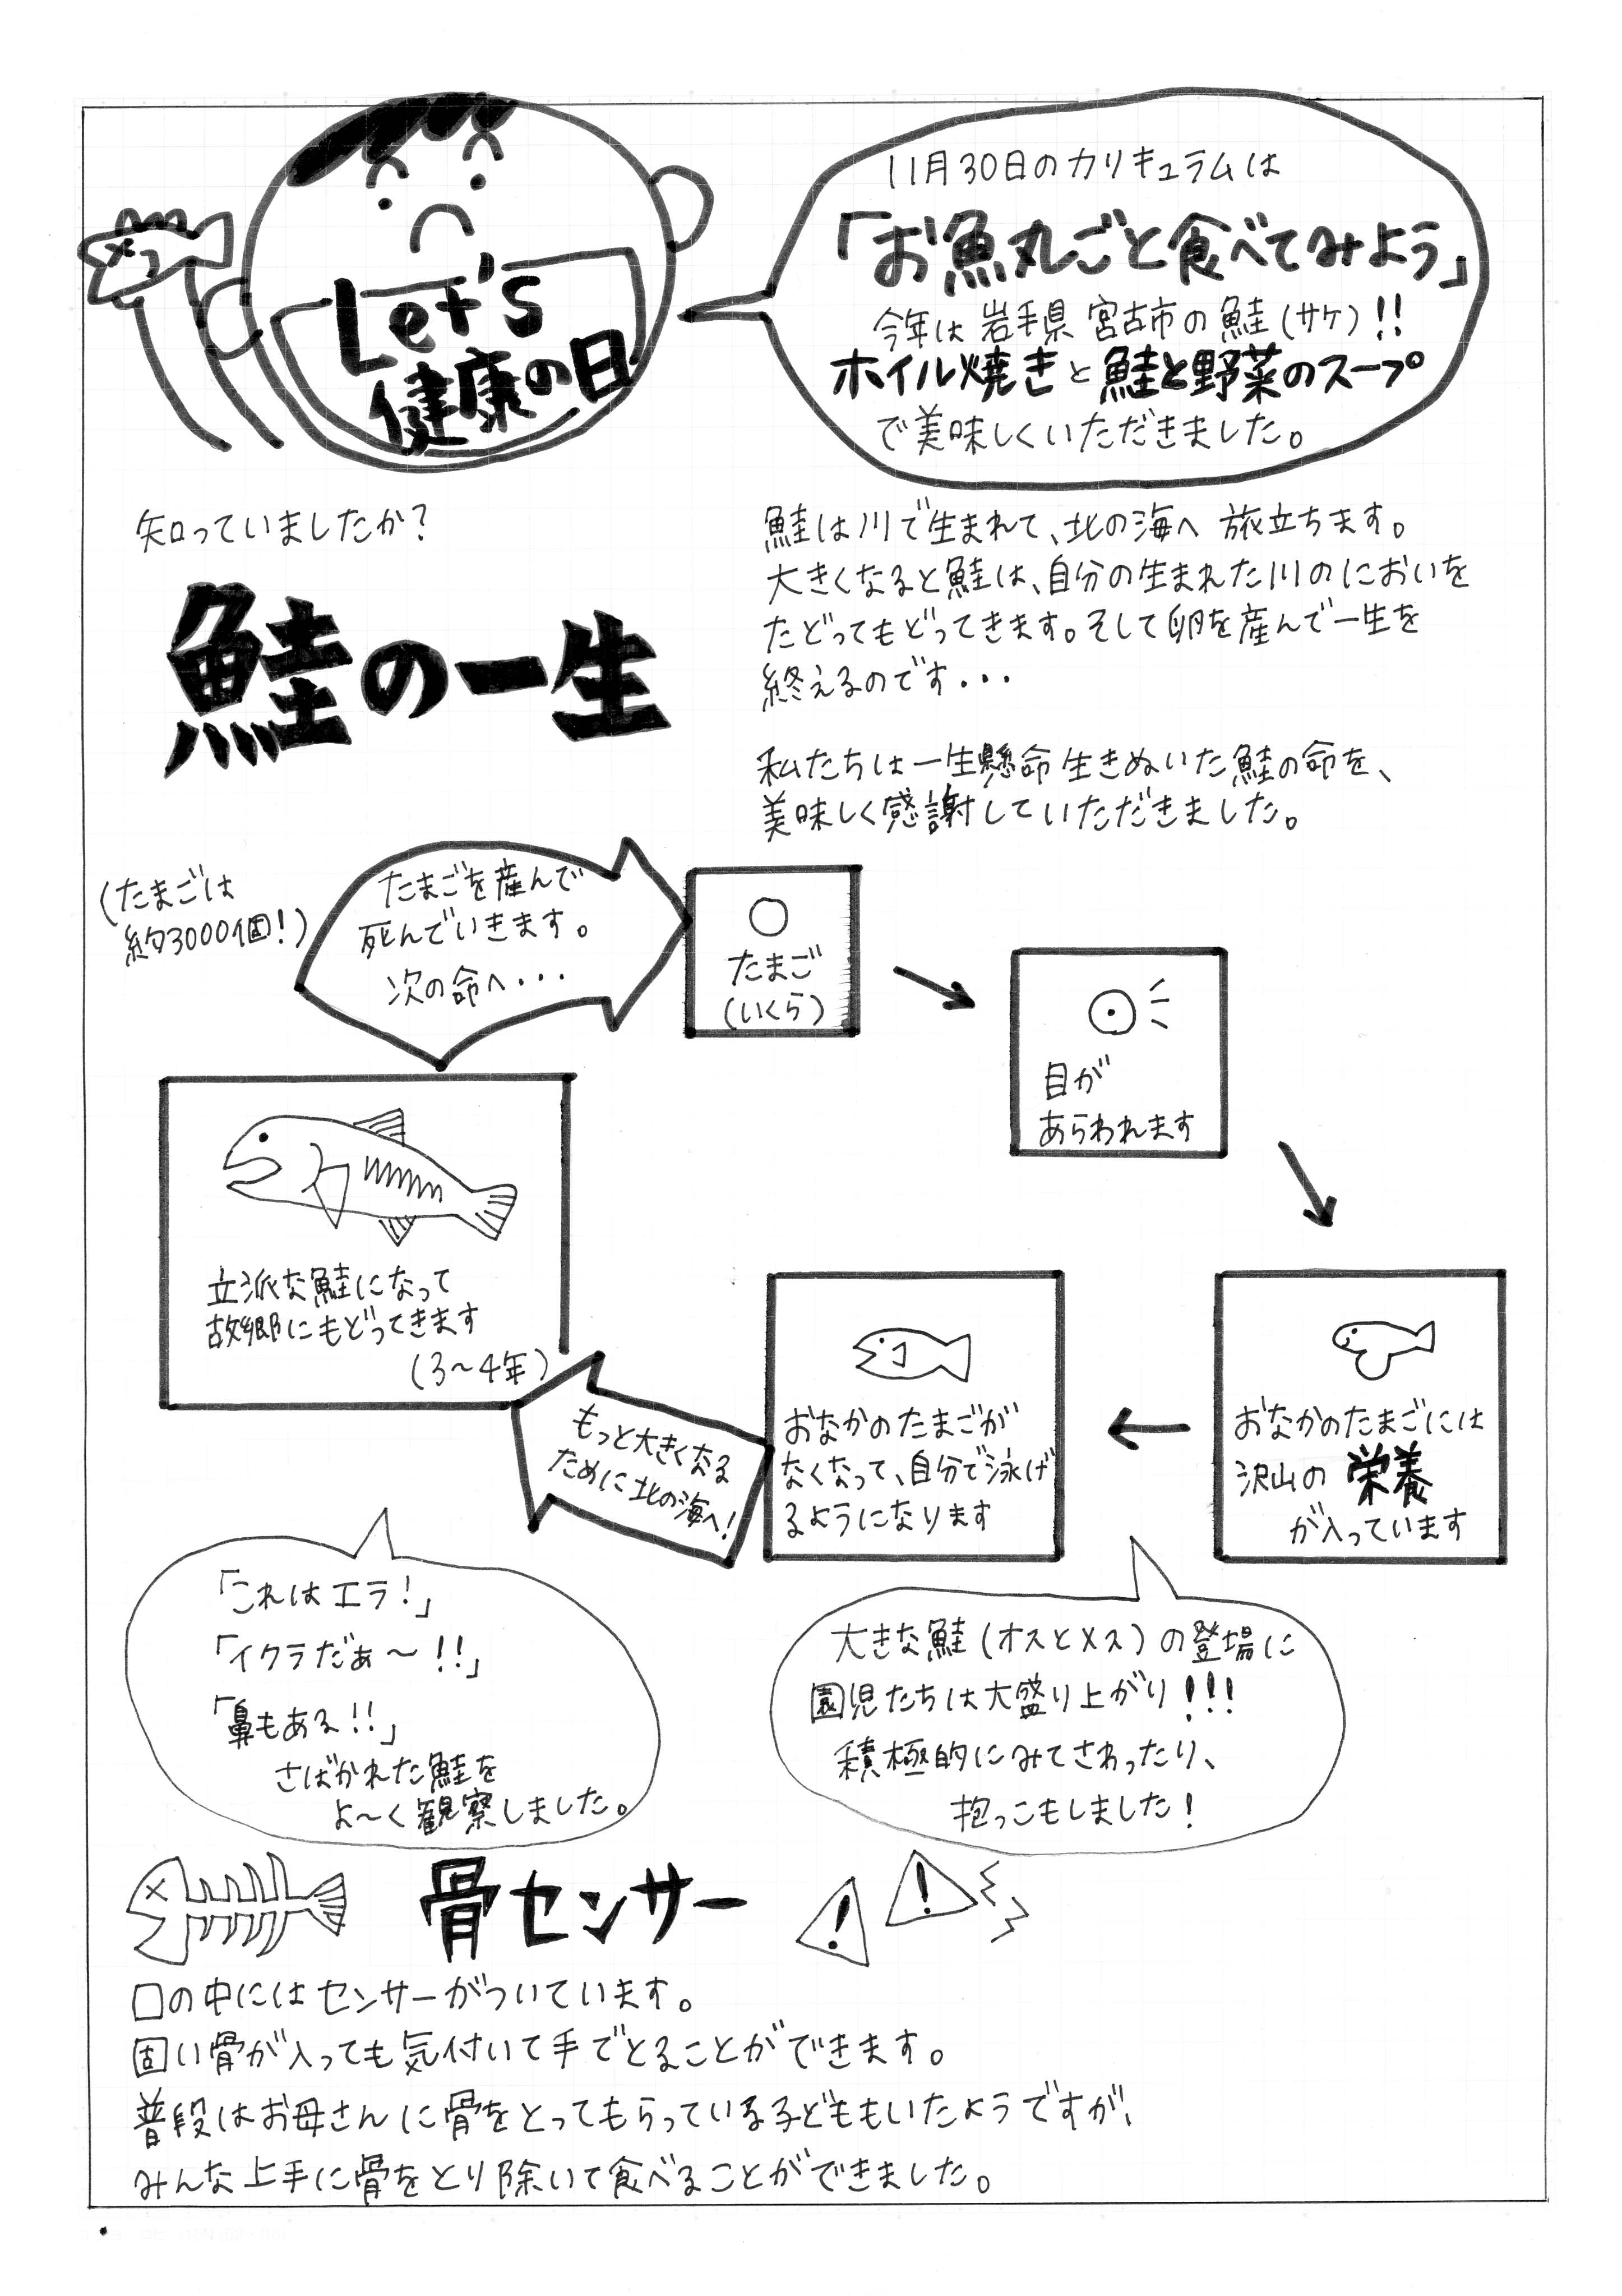 Let's
健康の日
11月30日のカリキュラムは
「お魚丸ごと食べてみよう」
今年は岩手県宮古市の鮭(サケ)!!
ホイル焼きと鮭と野菜のスープ
で美味しくいただきました。
知っていましたか?
鮭の一生
鮭は川で生まれて、北の海へ旅立ちます。
大きくなると鮭は、自分の生まれた川のにおいを
たどってもどってきます。そして卵を産んで一生を
終えるのです・・・
私たちは一生懸命生きぬいた鮭の命を、
美味しく感謝していただきました。
(たまごは
約3000個!)
たまごを産んで
死んでいきます。
次の命へ・・・
たまご
(いくら)
目が
あらわれます
おなかのたまごには
沢山の栄養
が入っています
おなかのたまごが
なくなって、自分で泳げ
るようになります
もっと大きくなる
ために北の海へ!
立派な鮭になって
故郷にもどってきます
(3〜4年)
「これはエラ!」
「イクラだぁ〜!!」
「鼻もある!!」
さばかれた鮭を
よ〜く観察しました。
大きな鮭(オスとメス)の登場に
園児たちは大盛り上がり!!!
積極的にみてさわったり、
抱っこもしました!
骨センサー
!
!
口の中にはセンサーがついています。
固い骨が入っても気付いて手でとることができます。
普段はお母さんに骨をとってもらっている子どももいたようですが、
みんな上手に骨をとり除いて食べることができました。